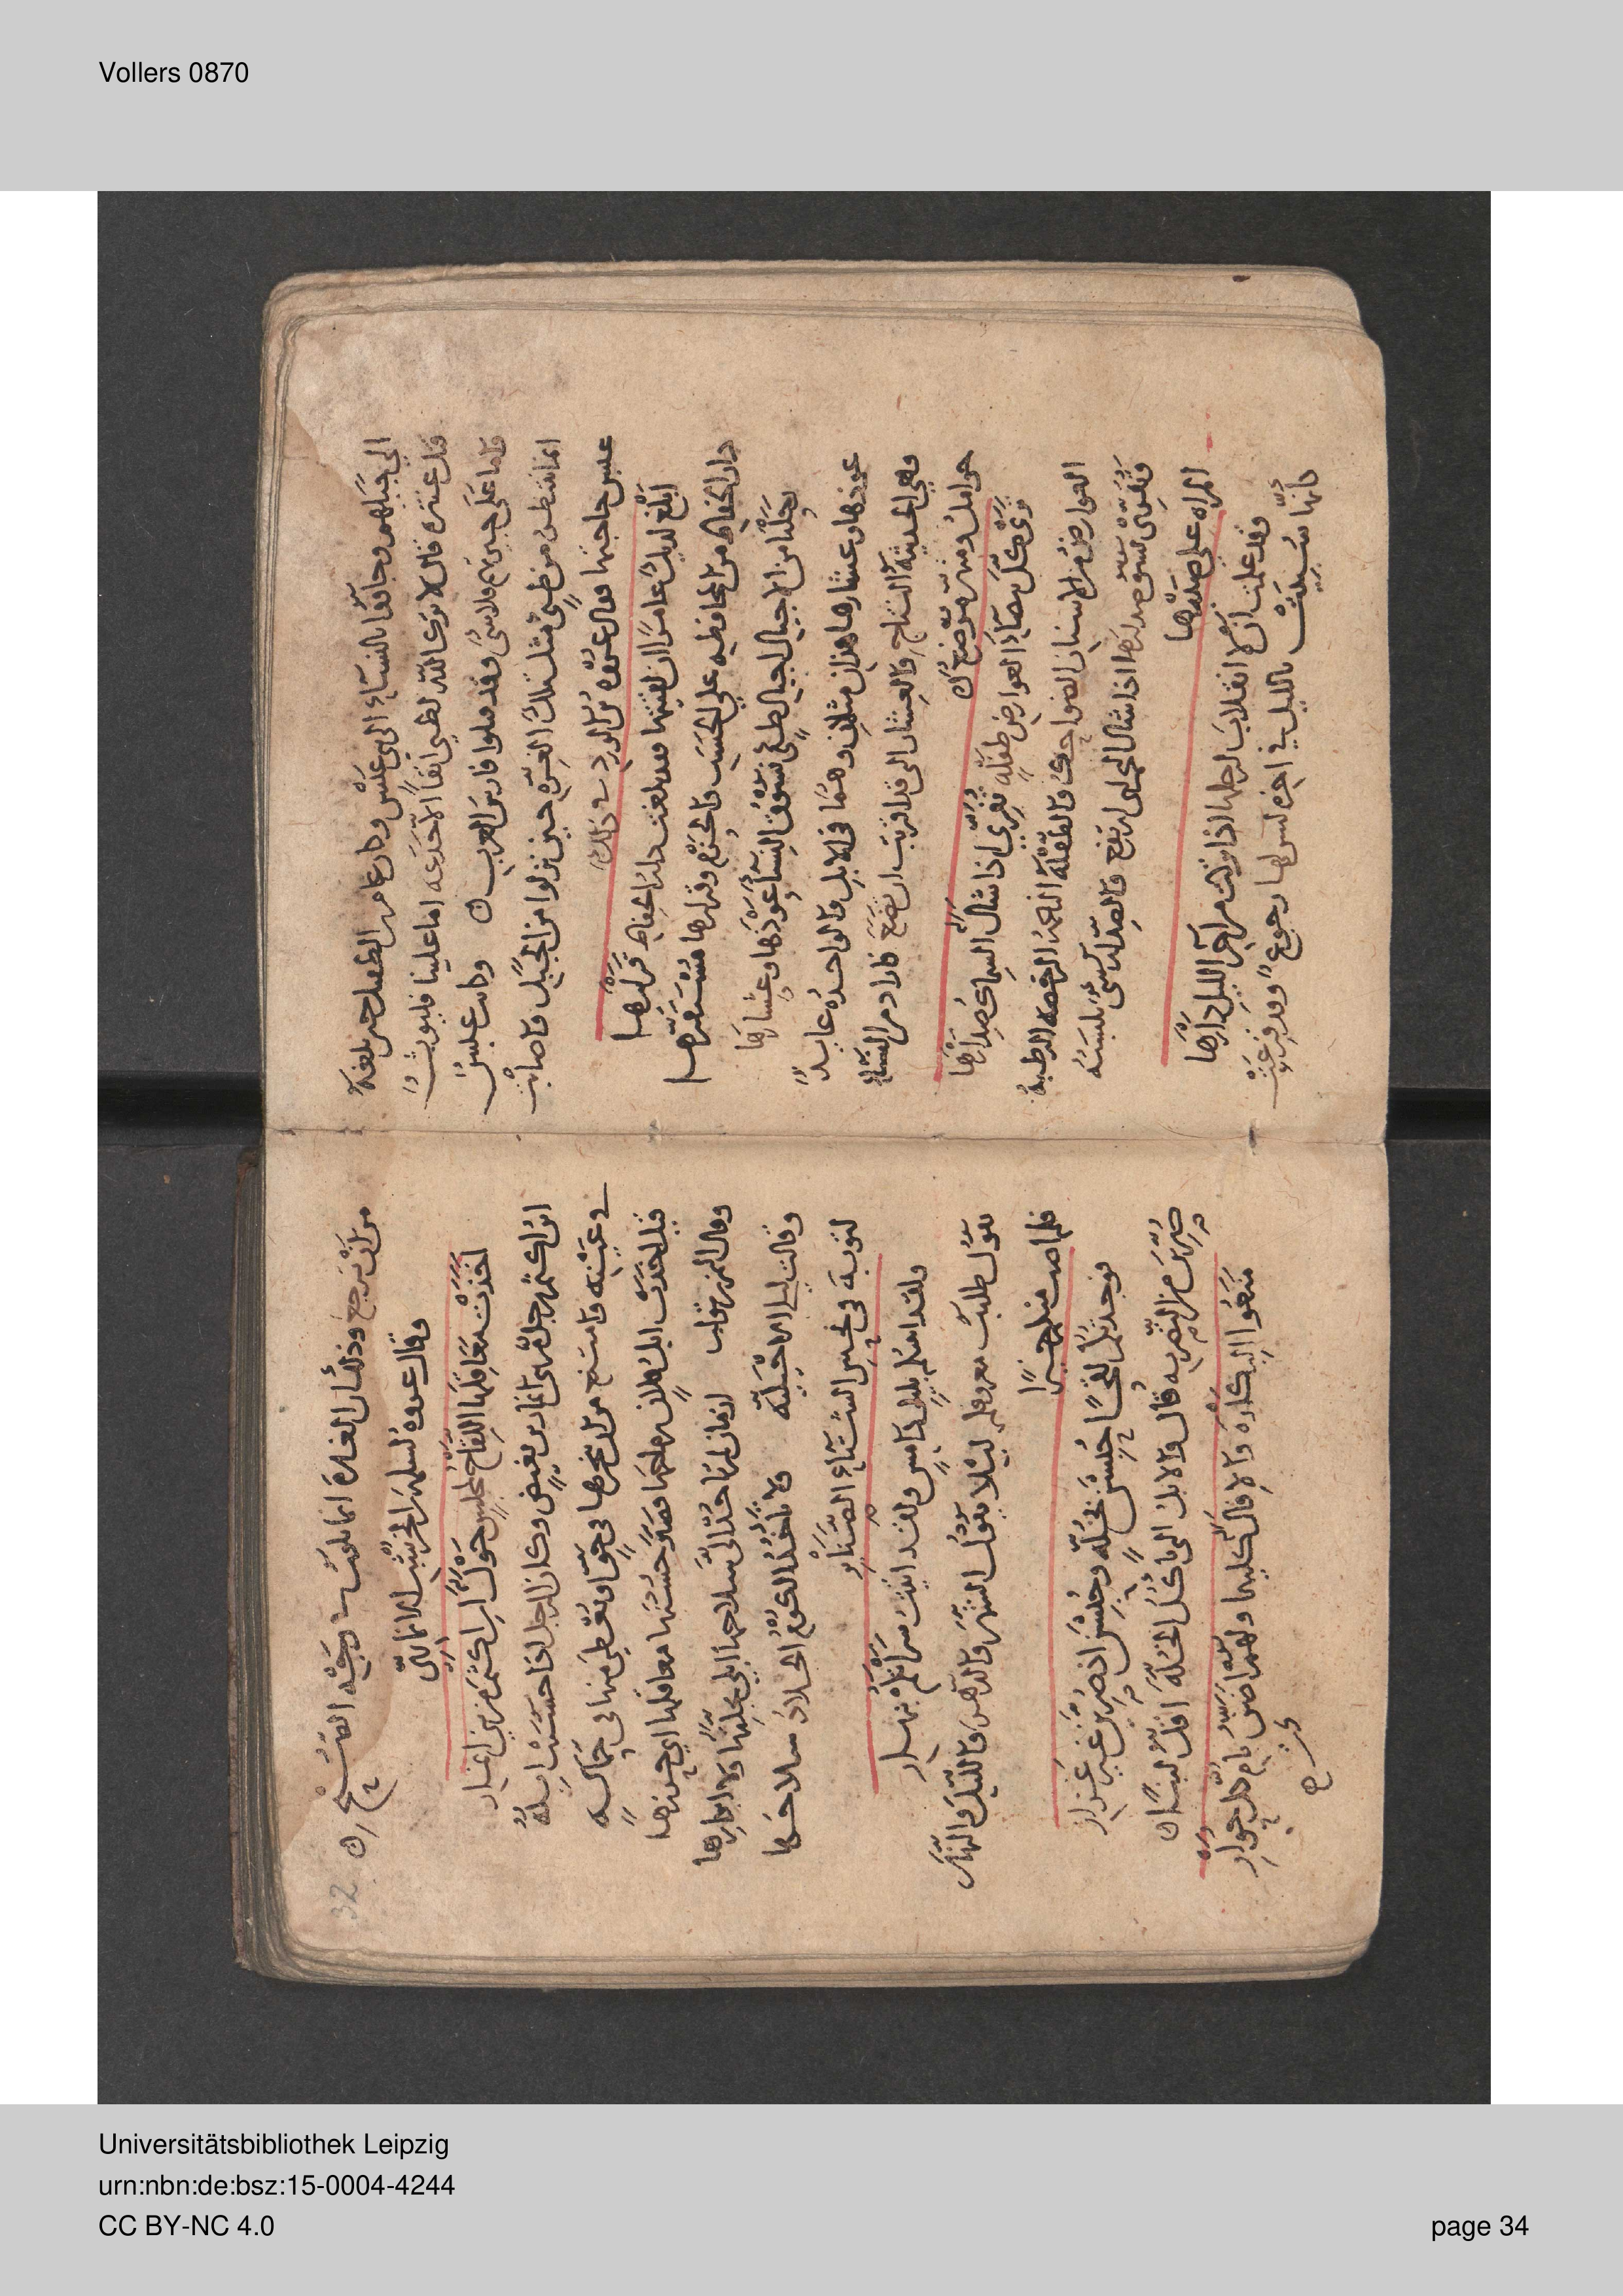 Vollers 0870
الى جبلهم وجاؤا بالنساء الى بني عبس وكان عامر بن الطفيل حين بلغه
قتل عنترة قال لا ترك الله لطيئ انفا الا جدعه اما علينا فليوث
واما على جيرانهم فلا شيء وقد قتلوا فارس العرب ه وكانت عبس
انما تنتظر من طيئ مثل تلك الغرة حين نزلوا من الجبل فاصابت
عبس حاجتها فقال عروة بن الورد في ذلك
ابلغ لديك عامرا ان لقيتها فقد بلغت دار الحفاظ قرارها
دار الحفاظ من المحافظه على الحسب وقرارها مستقرها
رحلنا من الاجبال اجبال طيئ نسوق النساء عوذها وعشارها
عوذها وعشارها هذان مثلان وهما في الابل والواحدة عايذ
وهي الحديثة النتاج والعشار التي قد قربت ان تضع فاراد من النساء
حوامل ومنهن موضع ه
ترى كل بيضاء العوارض طفلة تفري اذا شال السماك صدارها
العوارض من الاسنان الضواحك والطفلة الناعمة الرخصه الرطبة
وتفري تشق صدارها اذا شال السماك اي ارتفع والصدار شيء تلبسه
المراه على صدرها
وقد علمت ان لا انقلاب لرحلها اذا تركت من اخر الليل دارها
كانها سبيت بالليل في اخره ليس لها رجوع وقد فرغت
32
من ان ترجع وذلك ان الغارة انما تكون في وجه الصبح ه
وقال عروه لسلمة بن الخرشب الانماري
اخذت معاقلها اللقاح لمجلس حول ابن اكثم من بني انمار
ابن اكثم رجل من بني انمار بن بغيض وكان الرجل اذا حسنت ابله
في عينه فامتنع من ان ينحرها في حق او يعطي منها في حمالة
قيل اخذت ابل فلان رماحها حسنها معاقلها اي حرزها
وقال النمر بن تولب ازمان لم تاخذ الي سلاحها ابلي بجلتها ولا ابكارها
وقالت ليلى الاخيلية ولا تاخذ الكوم الجلاد سلاحها
لتوبة في نحس الشتاء الصنابر
ولقد اتيتكم بليل دامس ولقد اتيت سراتكم بنهار
يقول طلبت معروفكم ليلا
فلم اصب منكم خيرا
فوجدتكم لقحا حبسن بخلة وحبسن اذ صرين غير غزار
صرين من التصرية قال والابل التي تاكل الخلة اقل لبنا ه
منعوا البكارة والافال كليهما ولهم اضن بام كل حوار
Universitätsbibliothek Leipzig
urn:nbn:de:bsz:15-0004-4244
CC BY-NC 4.0
page 34